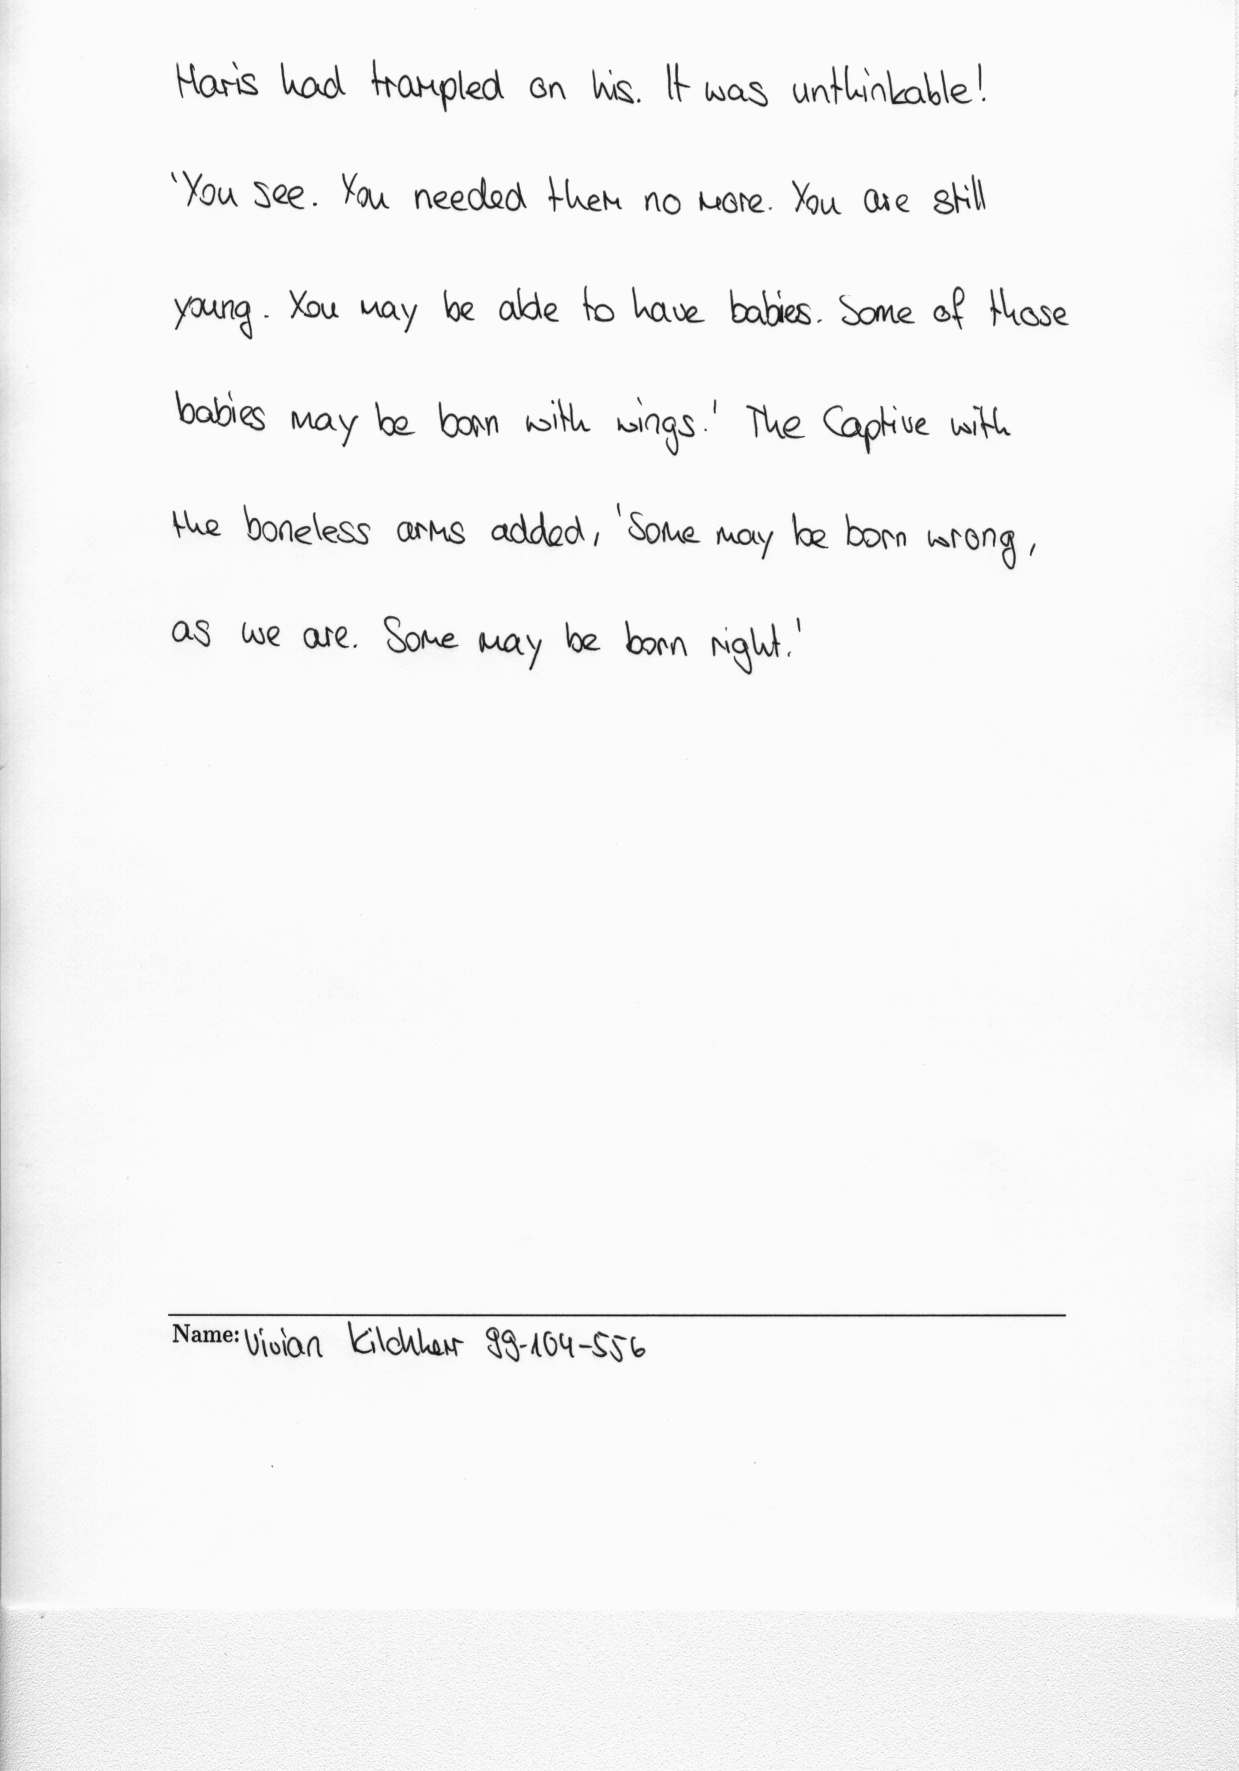 Haris had trampled on his. It was unthinkable!
'You see. You needed them no more. You are still
young. You may be able to have babies. Some of those
babies may be born with wings.' The Captive with
the boneless arms added, 'Some may be born wrong,
as we are. Some may be born right.'
Name: Vivian Kilchherr 99-104-556